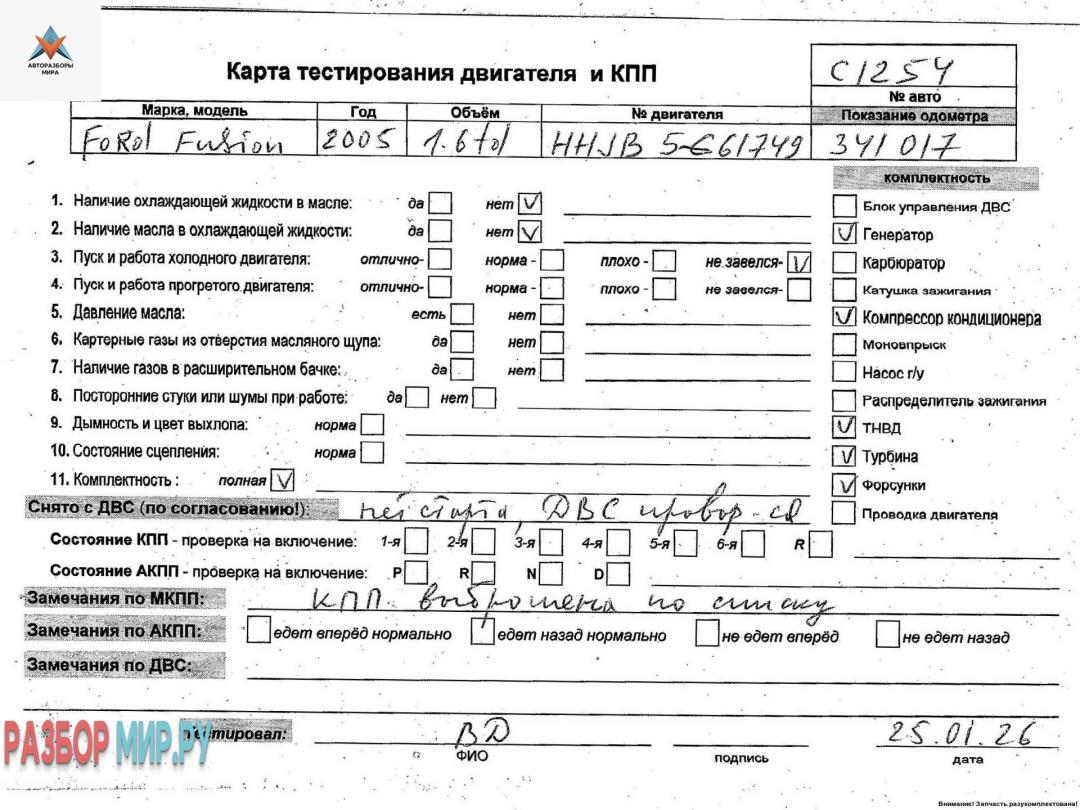 АВТОРАЗБОРЫ
МИРА
Карта тестирования двигателя и КПП
C1254
№ авто
Марка, модель Год Объём № двигателя Показание одометра
FoRd Fusion 2005 1.6 td HHJB 5-661749 341 017
комплектность
1. Наличие охлаждающей жидкости в масле: да нет V
Блок управления ДВС
2. Наличие масла в охлаждающей жидкости: да нет V
V Генератор
3. Пуск и работа холодного двигателя: отлично- норма - плохо - не завелся- V
Карбюратор
4. Пуск и работа прогретого двигателя: отлично- норма - плохо - не завелся-
Катушка зажигания
5. Давление масла: есть нет
V Компрессор кондиционера
6. Картерные газы из отверстия масляного щупа: да нет
Моновпрыск
7. Наличие газов в расширительном бачке: да нет
Насос г/у
8. Посторонние стуки или шумы при работе: да нет
Распределитель зажигания
9. Дымность и цвет выхлопа: норма
V ТНВД
10. Состояние сцепления: норма
V Турбина
11. Комплектность : полная V
V Форсунки
Снято с ДВС (по согласованию!): нет старта, ДВС провор-ся
Проводка двигателя
Состояние КПП - проверка на включение: 1-я 2-я 3-я 4-я 5-я 6-я R
Состояние АКПП - проверка на включение: P R N D
Замечания по МКПП: КПП выброшена по списку
Замечания по АКПП: едет вперёд нормально едет назад нормально не едет вперёд не едет назад
Замечания по ДВС:
РАЗБОРМИР.РУ
тестировал: ВД 25.01.26
ФИО подпись дата
Внимание! Запчасть разукомплектована!